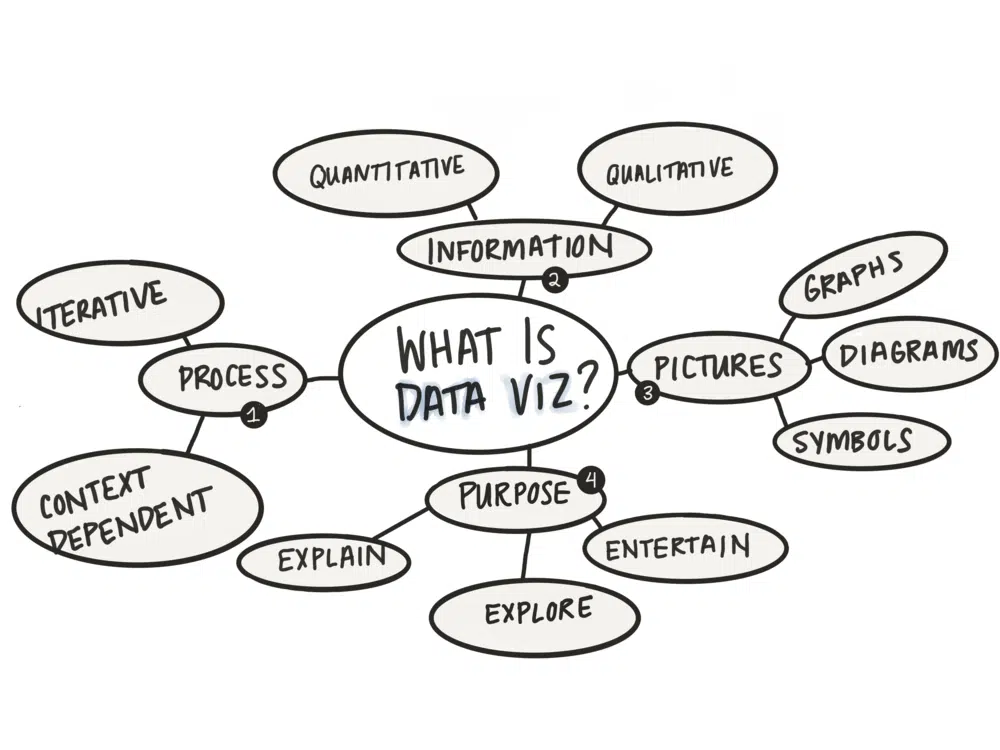 WHAT IS
DATA VIZ?
PROCESS
1
ITERATIVE
CONTEXT
DEPENDENT
INFORMATION
2
QUANTITATIVE
QUALITATIVE
PICTURES
3
GRAPHS
DIAGRAMS
SYMBOLS
PURPOSE
4
EXPLAIN
EXPLORE
ENTERTAIN